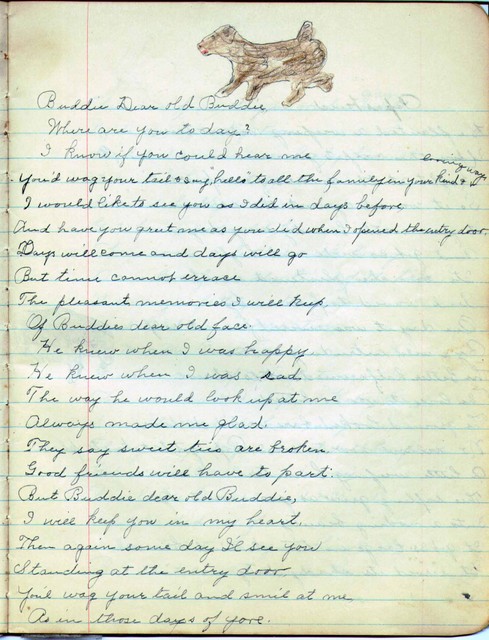 Buddie Dear old Buddie
Where are you to day?
I know if you could hear me
loving way.
You'd wag your tail & say hello to all the family in your kind &
I would like to see you as I did in days before
And have you greet me as you did when I opened the entry door.
Days will come and days will go
But time cannot errase
The pleasant memories I will keep
Of Buddies dear old face.
He knew when I was happy
He knew when I was sad
The way he would look up at me
Always made me glad.
They say sweet ties are broken.
Good friends will have to part.
But Buddie dear old Buddie,
I will keep you in my heart.
Then again some day I'll see you
Standing at the entry door.
You'l wag your tail and smil at me
As in those days of yore.